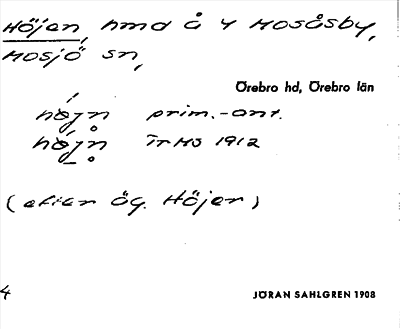 Höjen, hmd å 4 Mosåsby,
Mosjö sn,
Örebro hd, Örebro län
höjn prim.-ant.
höjn TrHS 1912
(efter äg. Höjer)
4
JÖRAN SAHLGREN 1908